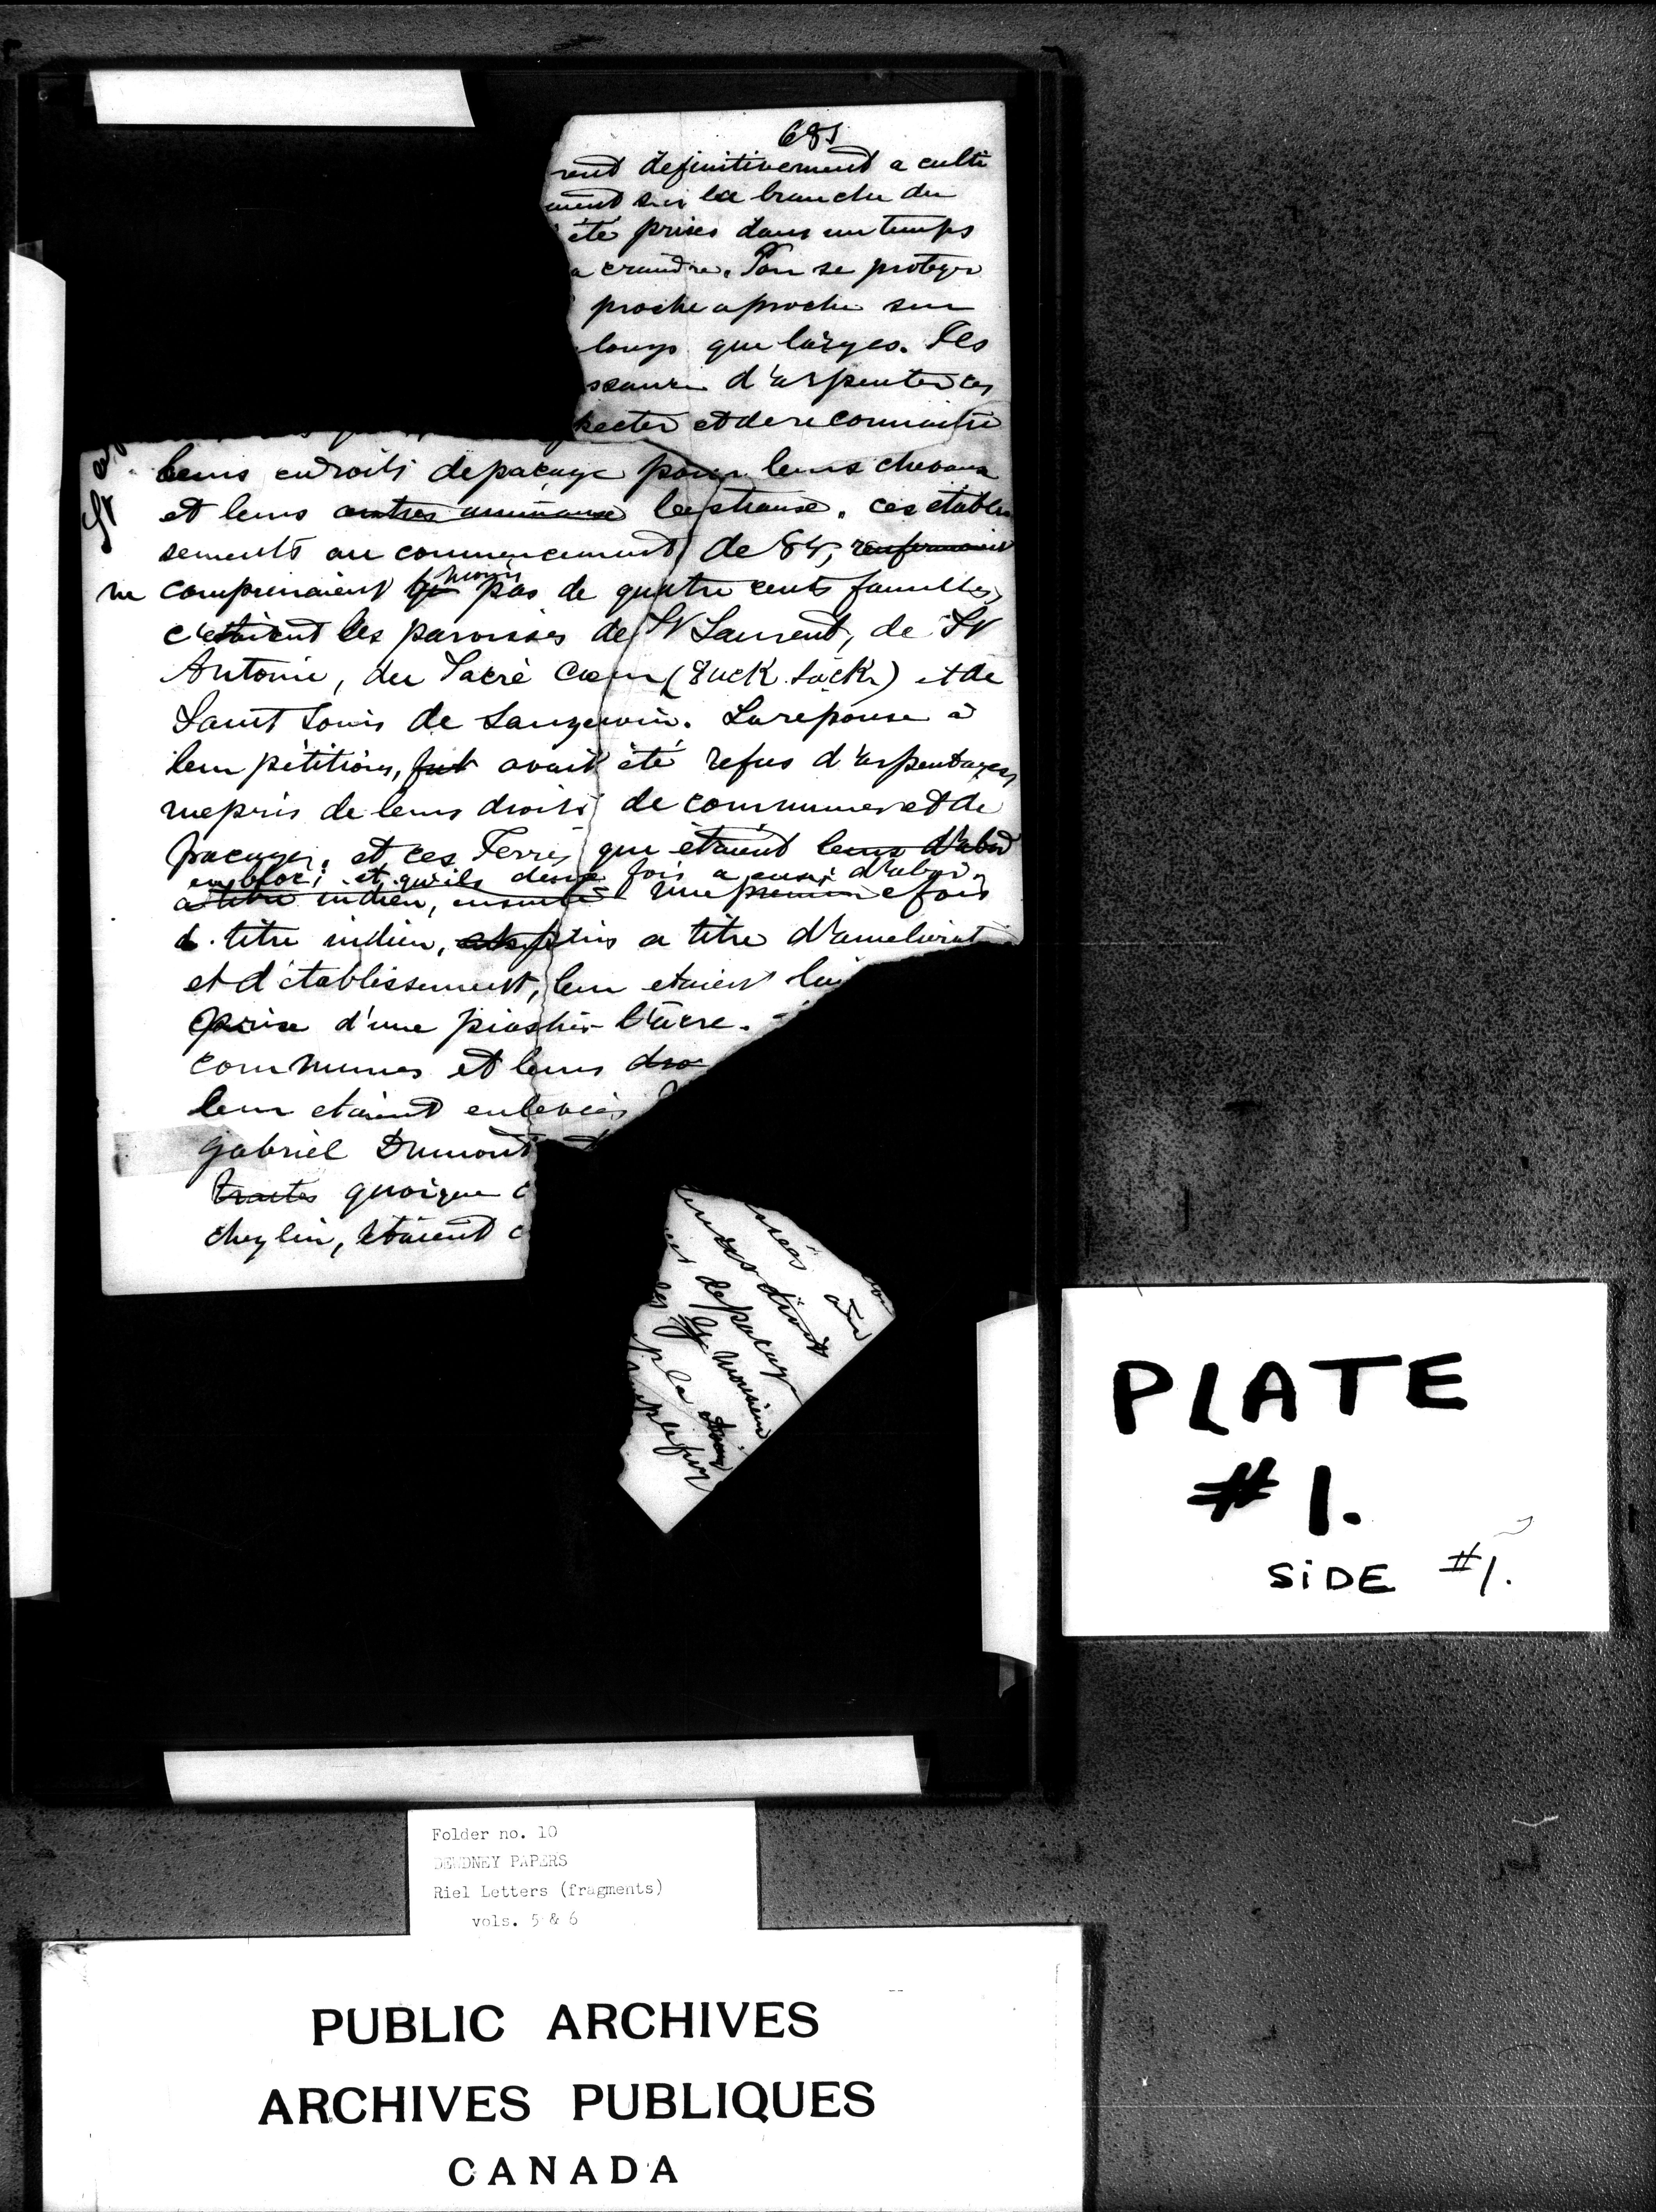 681
rent definitivement a culti
ment sur la branche du
été prises dans un temps
a craindre. Pour se proteger
proche a proche sur
longs que larges. Ils
d'arpenter ces
pecter et de reconnaitre
leurs endroits de pacage pour leurs chevaux
et leurs autres animaux bestiaux. ces établis
sements au commencement de 84, renfermaient
ne comprenaient moins pas de quatre cents familles,
c'etaient les paroisses de St Laurent, de St
Antoine, du Sacré Coeur (Duck Lack) et de
Saint Louis de Langevin. La reponse à
leur pétition, fut avait été refus d'arpentages,
mepris de leurs droits de communes et de
pacages. et ces Terres que étaient leurs d'abord
en bloc; et qu'ils deux fois a eux; d'abord
a titre indien, ensuite une premiere fois
à titre indien, puis a titre d'ameliorat
et d'établissement, leur etaient
prise d'une piastre l'âcre.
communes et leurs dro
leur etaient enlevées
Gabriel Dumont
traités quoique c
cheylin, étaient c
droit
de pacag
les Monsieur
la
PLATE
#1.
SIDE #1.
Folder no. 10
DEWDNEY PAPERS
Riel Letters (fragments)
vols. 5 & 6
PUBLIC ARCHIVES
ARCHIVES PUBLIQUES
CANADA